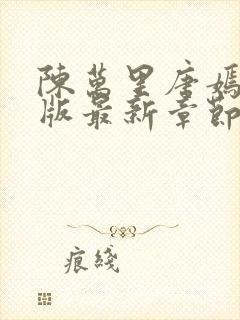 陳萬里唐嫣
版最新章節
痕綫